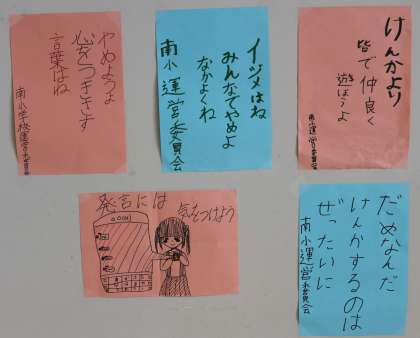 やめようよ
心をつきさす
言葉はね
南小学校運営委員会
イジメはね
みんなでやめよ
なかよくね
南小運営委員会
けんかより
皆で仲良く
遊ぼうよ
南小運営委員会
発言には
気をつけよう
だめなんだ
けんかするのは
ぜったいに
南小運営委員会